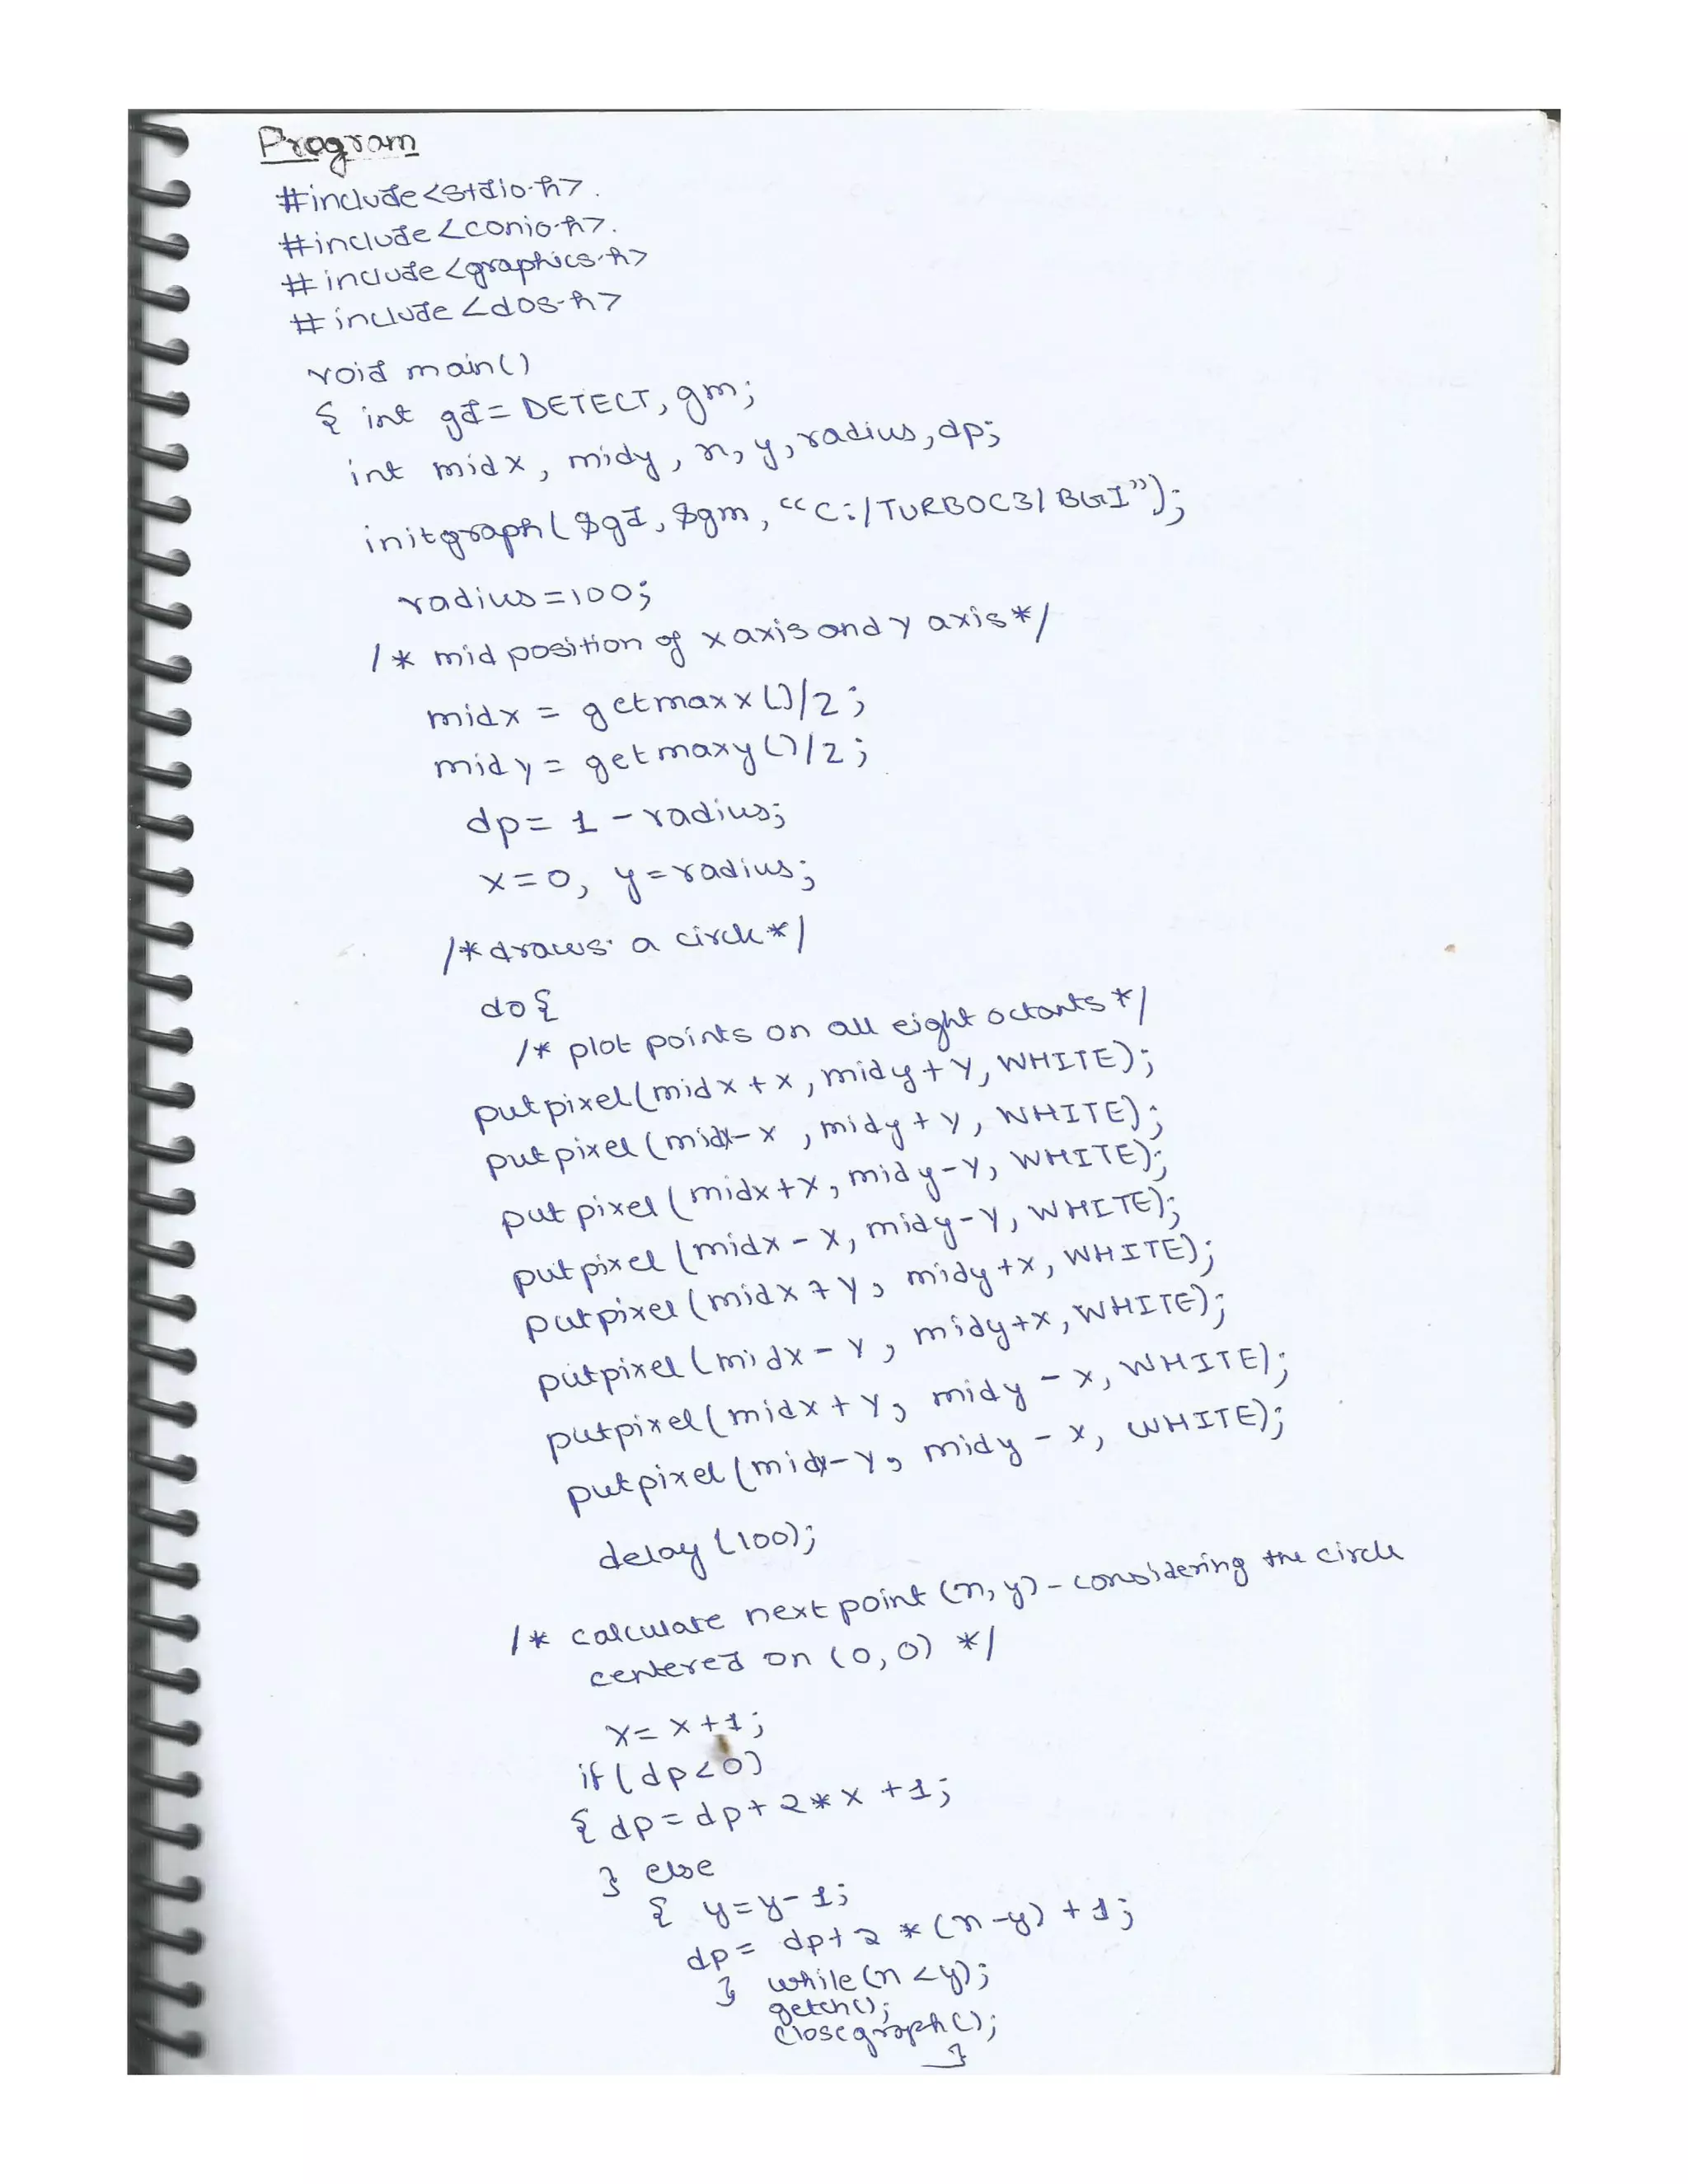 Program
#include<stdio.h>.
#include<conio.h>.
#include<graphics.h>
#include<dos.h>
void main()
{ int gd= DETECT, gm;
int midx, midy, x, y, radius, dp;
initgraph(&gd, &gm, "C:/TURBOC3/BGI");
radius=100;
/* mid position of x axis and y axis*/
midx = getmaxx()/2;
midy= getmaxy()/2;
dp= 1 - radius;
x=0, y=radius;
/*draws a circle*/
do{
/* plot points on all eight octants*/
putpixel(midx+x, midy+y, WHITE);
putpixel(midx-x, midy+y, WHITE);
putpixel(midx+x, midy-y, WHITE);
putpixel(midx-x, midy-y, WHITE);
putpixel(midx+y, midy+x, WHITE);
putpixel(midx-y, midy+x, WHITE);
putpixel(midx+y, midy-x, WHITE);
putpixel(midx-y, midy-x, WHITE);
delay(100);
/* calculate next point (x, y) - considering the circle
centered on (0,0) */
x= x+1;
if(dp<0)
{ dp=dp+2*x+1;
} else
{ y=y-1;
dp= dp+2*(x-y)+1;
} while(x<y);
getch();
closegraph();
}